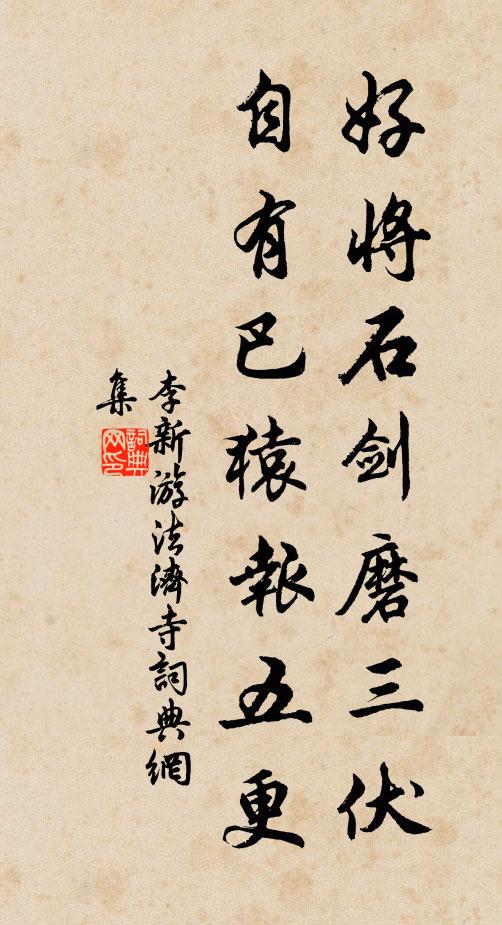 好将石剑磨三伏
自有巴猿報五更
李新游法濟寺詞典網
集
詞典網印